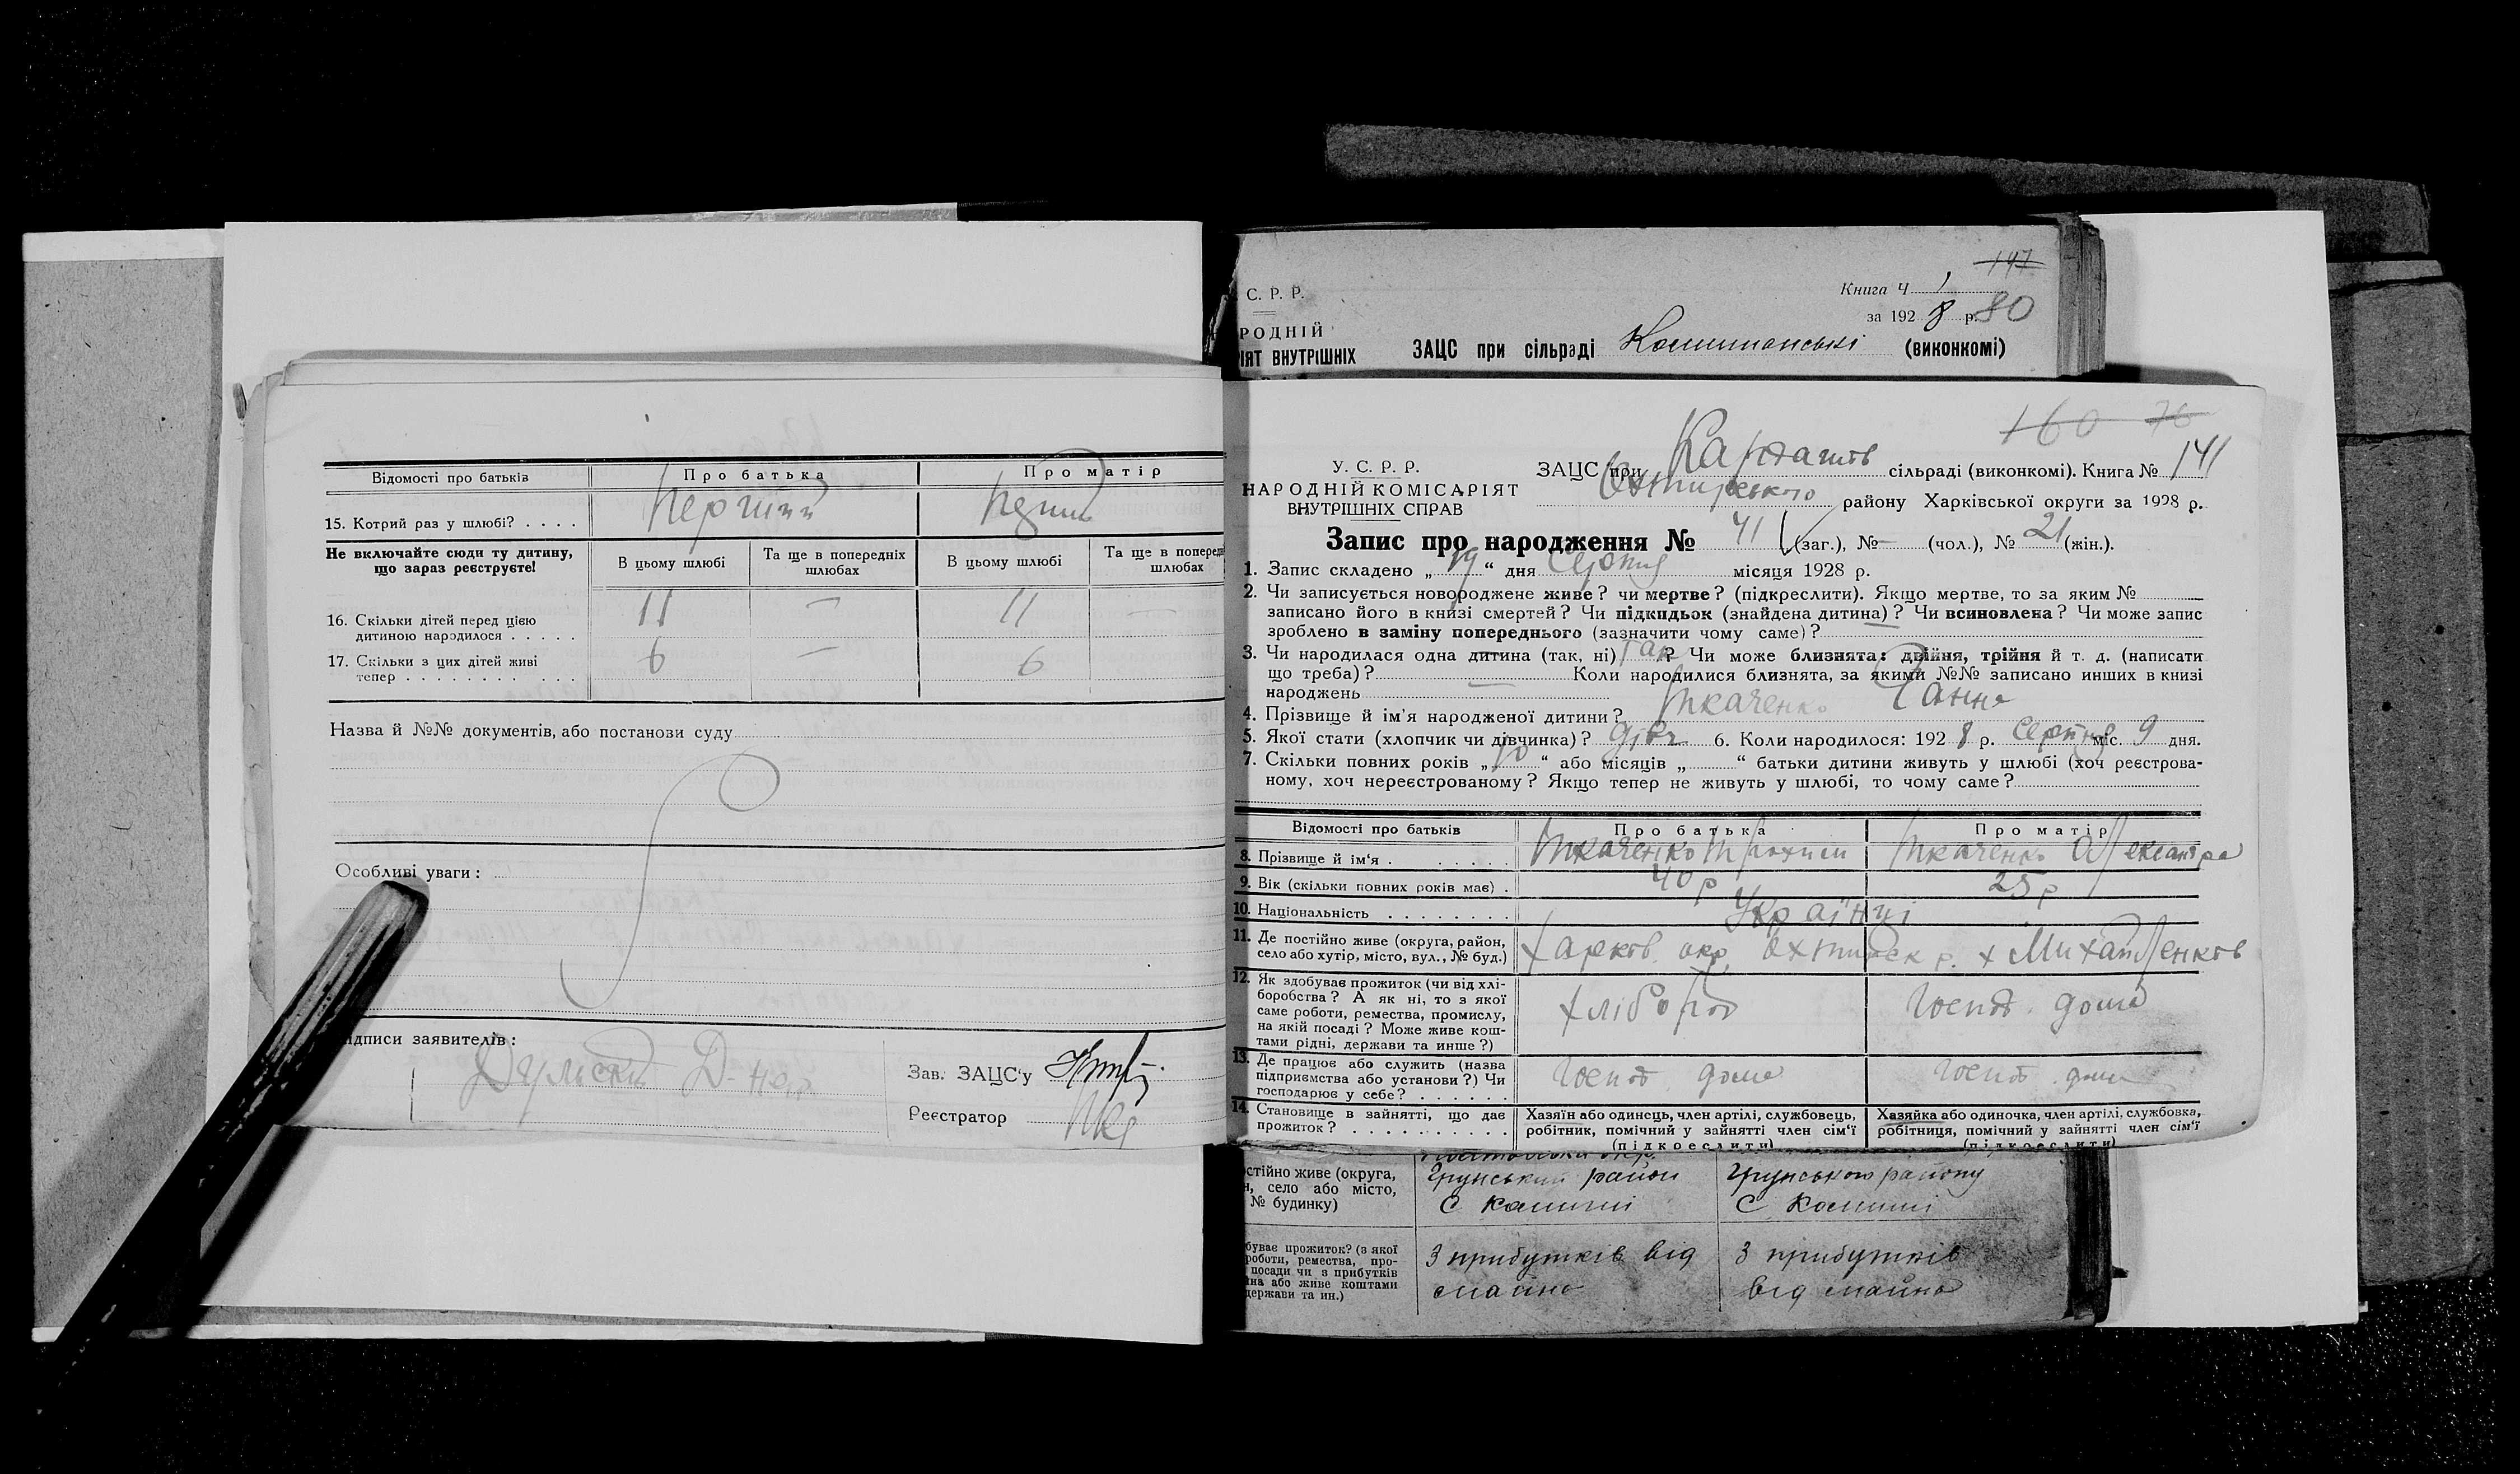 Відомості про батьків
Про батька
Про матір
15. Котрий раз у шлюбі? . . . .
Перший
Не включайте сюди ту дитину,
що зараз реєструєте!
В цьому шлюбі
Та ще в попередніх
шлюбах
В цьому шлюбі
Та ще в поперед
шлюбах
16. Скільки дітей перед цією
дитиною народилося . . . . .
11
—
11
—
17. Скільки з цих дітей живі
тепер . . . . . . . . . . .
6
—
6
Назва й №№ документів, або постанови суду
Особливі уваги:
ідписи заявителів:
Зав. ЗАЦС'у
Реєстратор
147
С. Р. Р.
Книга Ч 1
за 192 8 р. 80
РОДНІЙ
ІЯТ ВНУТРІШНІХ
ЗАЦС при сільраді (виконкомі)
160 76
У. С. Р. Р.
НАРОДНІЙ КОМІСАРІЯТ
ВНУТРІШНІХ СПРАВ
ЗАЦС при Кардашів сільраді (виконкомі). Книга № 141
Охтирського району Харківської округи за 1928 р.
Запис про народження № 41 (заг.), №— (чол.), № 21 (жін.).
1. Запис складено „19“ дня Серпня місяця 1928 р.
2. Чи записується новороджене живе? чи мертве? (підкреслити). Якщо мертве, то за яким №
записано його в книзі смертей? Чи підкидьок (знайдена дитина)? Чи всиновлена? Чи може запис
зроблено в заміну попереднього (зазначити чому саме)? —
3. Чи народилася одна дитина (так, ні) так? Чи може близнята: двійня, трійня й т. д. (написати
що треба)? — Коли народилися близнята, за якими №№ записано инших в книзі
народжень
4. Прізвище й ім'я народженої дитини? Ткаченко Ганна
5. Якої стати (хлопчик чи дівчинка)? дівч 6. Коли народилося: 192 8 р. Серпня міс. 9 дня.
7. Скільки повних років „10“ або місяців „ “ батьки дитини живуть у шлюбі (хоч реєстрова-
ному, хоч нереєстрованому? Якщо тепер не живуть у шлюбі, то чому саме?
Відомості про батьків
Про батька
Про матір
8. Прізвище й ім'я . . . . . .
Ткаченко Трохим
Ткаченко Олександра
9. Вік (скільки повних років має) .
40 р
25 р
10. Національність . . . . . . . .
Українці
11. Де постійно живе (округа, район,
село або хутір, місто, вул., № буд.)
Харків. окр. Охтирск р. х Михайленків
12. Як здобуває прожиток (чи від хлі-
боробства? А як ні, то з якої
саме роботи, ремества, промислу,
на якій посаді? Може живе кош-
тами рідні, держави та инше?)
хлібороб
Господ. дома
13. Де працює або служить (назва
підприємства або установи?) Чи
господарює у себе? . . . . . .
Господ. дома
Господ. дома
14. Становище в зайнятті, що дає
прожиток? . . . . . . . . . .
Хазяїн або одинець, член артілі, службовець,
робітник, помічний у зайнятті член сім'ї
(підкреслити)
Хазяйка або одиночка, член артілі, службовка,
робітниця, помічний у зайнятті член сім'ї
(підкреслити)
стійно живе (округа,
н, село або місто,
№ будинку)
Грунський район
С Комиші
Грунського району
С Комиші
буває прожиток? (з якої
роботи, ремества, про-
посади чи з прибутків
на або живе коштами
держави та ин.)
З прибутків від
майна
З прибутків
від майна